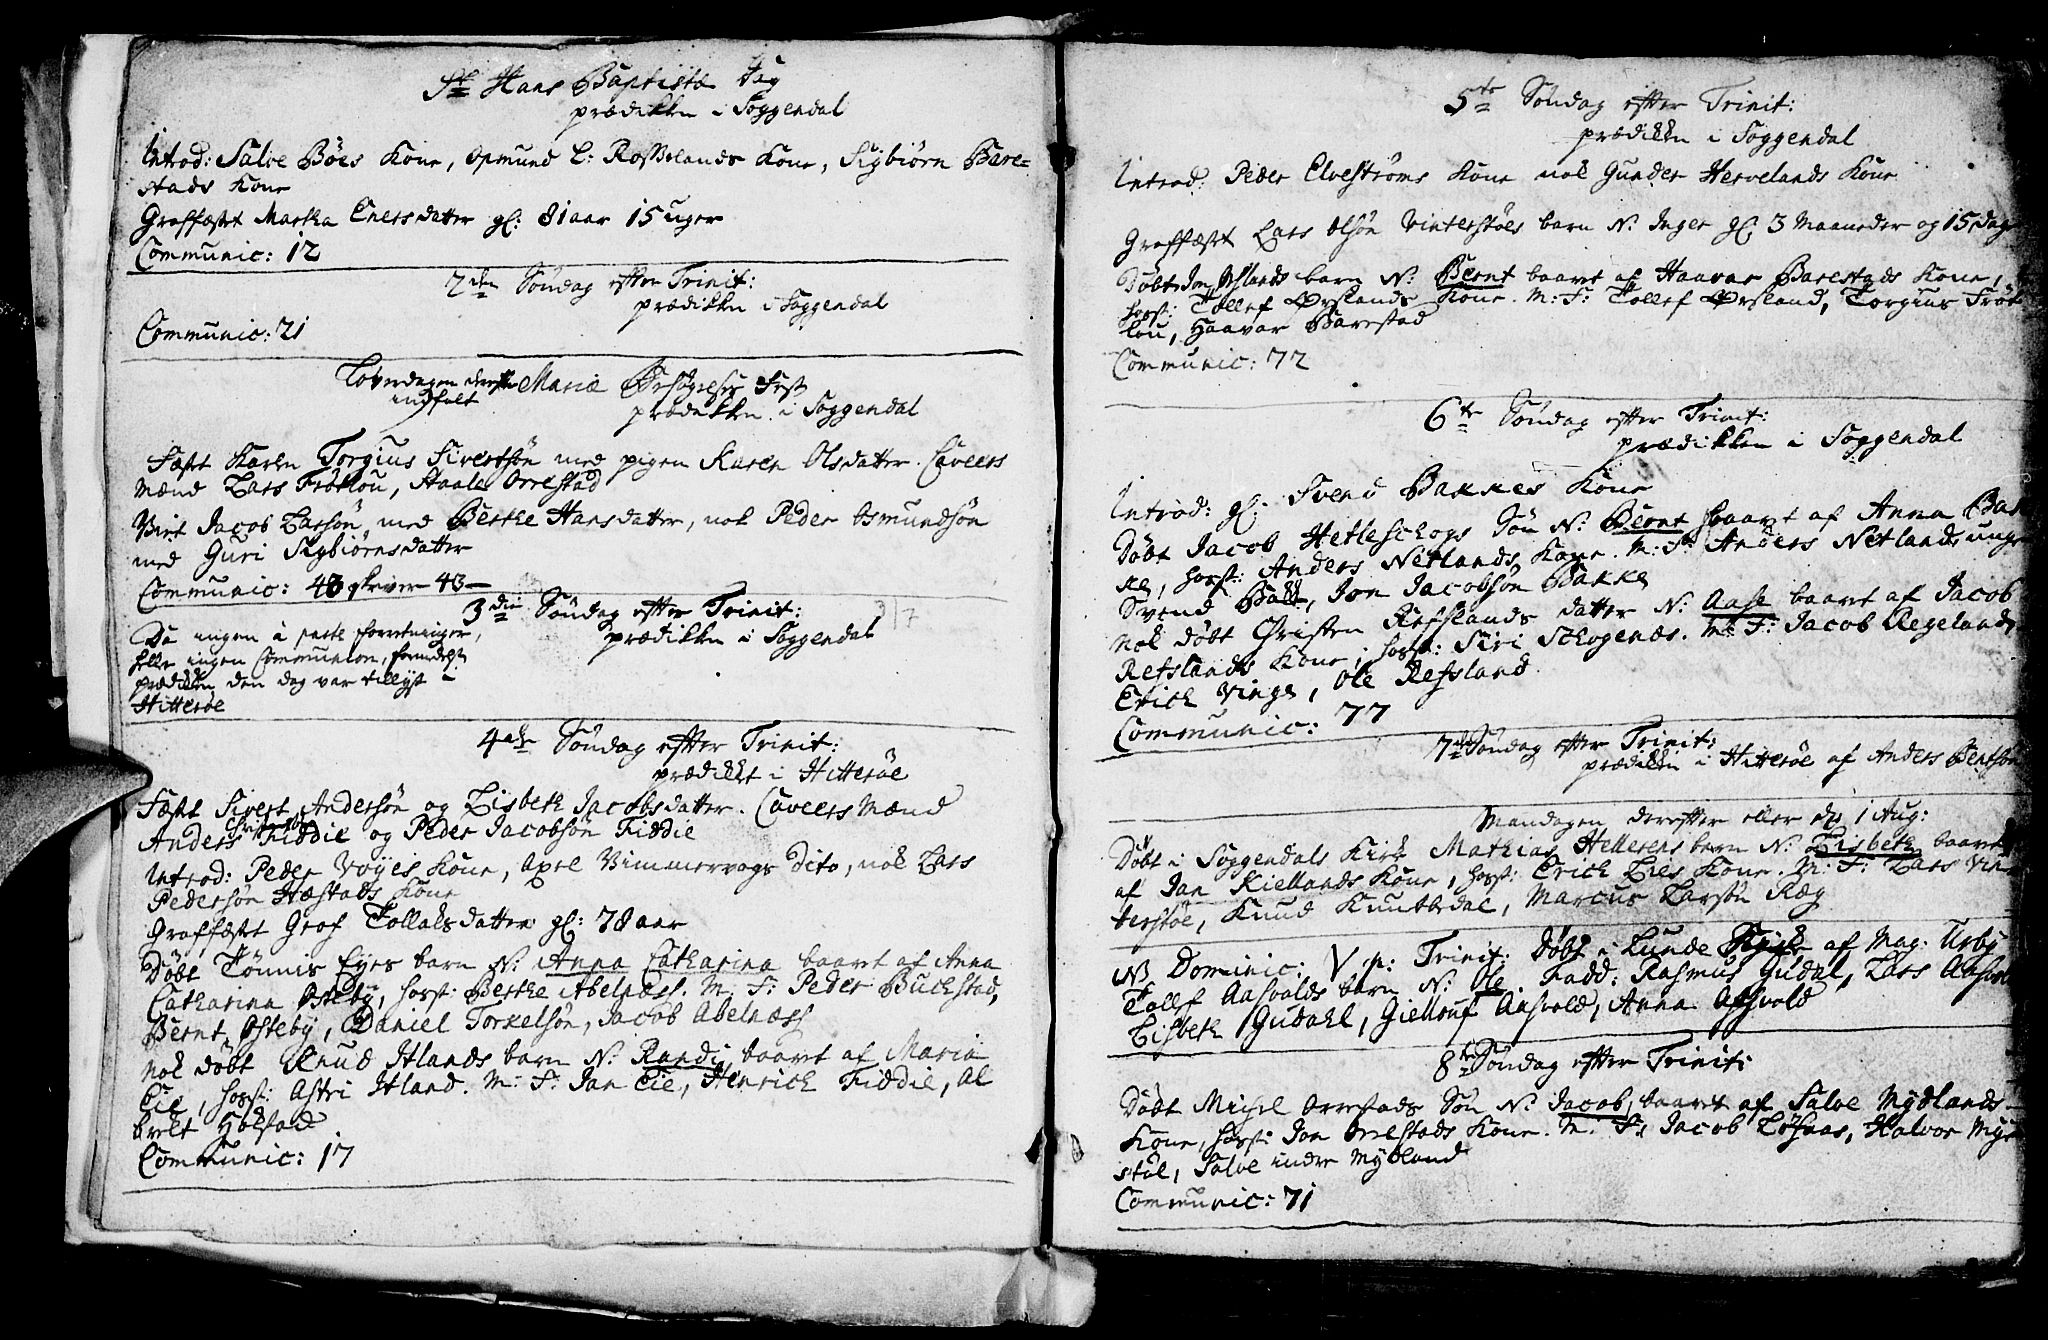 St Hans Baptistæ Dag
prædikken i Soggendal
Introd: Salve Böes Kone, Opmund L: Rosselands Kone, Sigbiörn Bare-
stads Kone
Graffæstet Martha Enersdatter gl: 81 aar 15 uger
Communic: 12
2den Söndag efter Trinit:
prædikken i Soggendal
Communic: 21
Löverdagen derefter Mariæ Besögelses Fest
indfalt
prædikken i Soggendal
Fæstet Karlen Torgius Sivertsön med pigen Karen Olsdatter. Caveers
Mænd Lars Fröitlou, Staale Orrestad
Viet Jacob Larsön med Berthe Hansdatter, nok Peder Osmundsön
med Guri Sigbiörnsdatter
Communic: 43 skriver 43
3die Söndag efter Trinit:
prædikken i Soggendal
3/7
Da ingen à parte forretninger,
heller ingen Communion, formedelst
prædikken den dag var tillyst i
Hitteröe
4de Söndag efter Trinit:
prædikket i Hitteröe
Fæstet Sivert Andersön og Lisbeth Jacobsdatter. Caveers Mænd
Anders Fiddie og Peder Jacobsön Fiddie
Introd: Peder Vöyes Kone, Axel Vimmervogs Dito, nok Lars
Pedersön Hæstads Kone
Graffæstet Groe Tollaksdatter gl: 78 aar
Döbt Tönnis Eyes barn N: Anna Catharina baaret af Anna
Catharina Östebÿ, hosst: Berthe Abelnæss. M. F: Peder Buchstad,
Bernt Östebÿ, Daniel Torkelsön, Jacob Abelnæss
Nok döbt Knud Itlands barn N: Randi, baaret af Maria
Eie, hosst: Astri Itland. M: F: Jan Eie, Henrich Fiddie, Al
bret Hölstad
Communic: 17
5te Söndag efter Trinit:
prædikken i Soggendal
Introd: Peder Elveströms Kone nok Gunder Hervelands Kone
Graffæstet Lars Olsön Vinterstöes barn N: Inger gl: 3 Maaneder og 15 dage
Döbt Jon Ørslands barn N: Bernt baaret af Haavar Barestads Kone,
hosst: Tollef Ørslands Kone. M: F: Tollef Ørsland, Torgius Fröit
lou, Haavar Barestad
Communic: 72
6te Söndag efter Trinit:
prædikken i Soggendal
Introd: gl. Svend Bakkes Kone
Döbt Jacob Hetleschogs Sön N: Bernt baaret af Anna Bak
ke, hosst: Anders Netlands Kone. M: F: Anders Netland, unge
Svend Bakke, Jon Jacobsön Bakke
Nok döbt Christen Refslands datter N: Aase baaret af Jacob
Refslands Kone, hosst: Siri Schogenæs. M: F: Jacob Regeland,
Erich Vinge, Ole Refsland
Communic: 77
7de Söndag efter Trinit:
prædikken i Hitteröe af Anders Berntsön
Mandagen derefter eller d. 1 Aug:
Döbt i Soggendals Kirke Mathias Hellerens barn N: Lisbeth baaret
af Jan Kiellands Kone, hosst: Erich Lies Kone. M: F: Lars Vin
terstöe, Knud Knutbedal, Marcus Larsön Ræg
NB Dominic: V p: Trinit: Döbt i Lunde Kirke af Mag: Usbÿ
Tollef Aasvolds barn N: Ole. Fadd: Rasmus Gudal, Lars Aasvold
Lisbeth Gudahl, Giellouf Aasvold, Anna Aasvold
8de Söndag efter Trinit:
Döbt Michel Orrestads Sön N: Jacob, baaret af Salve Mÿdlands
Kone, hosst: Jon Orrestads Kone. M: F: Jacob Löinaas, Halvor Mÿs
stöl, Salve indre Mÿdland
Communic: 71